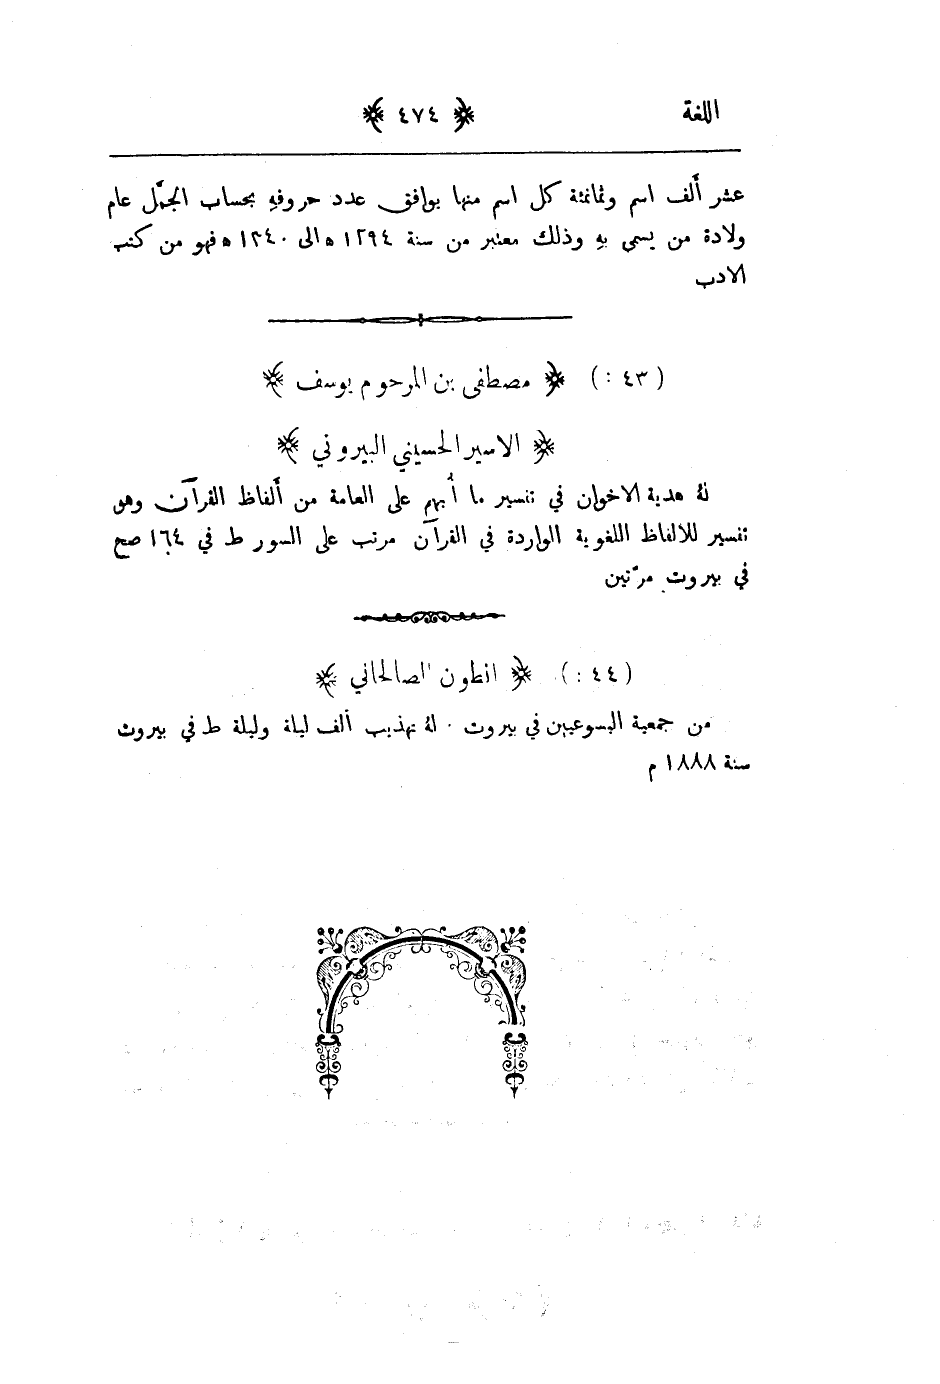 اللغة ﴿ ٤٧٤ ﴾
عشر ألف اسم وثمانمئة كل اسم منها يوافق عدد حروفهِ بحساب الجمَّل عام
ولادة من يسمى بهِ وذلك معتبر من سنة ١٢٩٤ ه الى ١٣٤٠ ه فهو من كتب
الادب
( ٤٣ : ) ﴿ مصطفى بن المرحوم يوسف ﴾
﴿ الاسير الحسيني البيروتي ﴾
لهُ هدية الاخوان في تفسير ما أُبهم على العامة من ألفاظ القرآن وهو
تفسير للالفاظ اللغوية الواردة في القرآن مرتب على السور ط في ١٦٤ صح
في بيروت مرّتين
( ٤٤ : ) ﴿ انطون الصالحاني ﴾
من جمعية اليسوعيين في بيروت . لهُ تهذيب ألف ليلة وليلة ط في بيروت
سنة ١٨٨٨ م